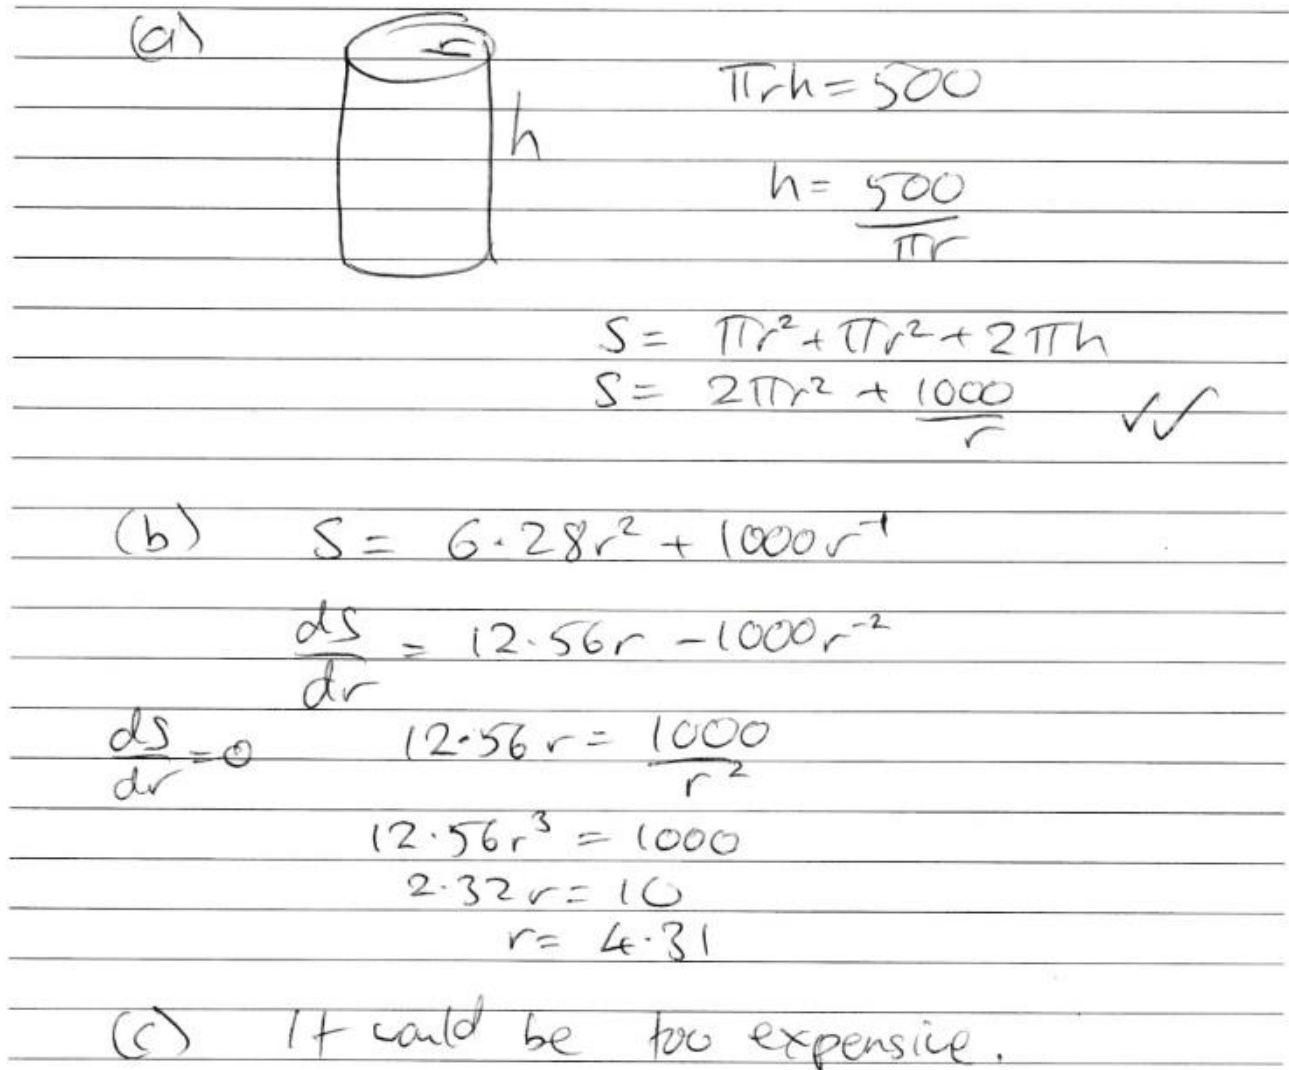 (a)
r
h
πrh = 500
h = 500/πr
S = πr² + πr² + 2πh
S = 2πr² + 1000/r ✓✓
(b) S = 6.28r² + 1000r⁻¹
dS/dr = 12.56r - 1000r⁻²
dS/dr = 0 12.56r = 1000/r²
12.56r³ = 1000
2.32r = 10
r = 4.31
(c) It could be too expensive.